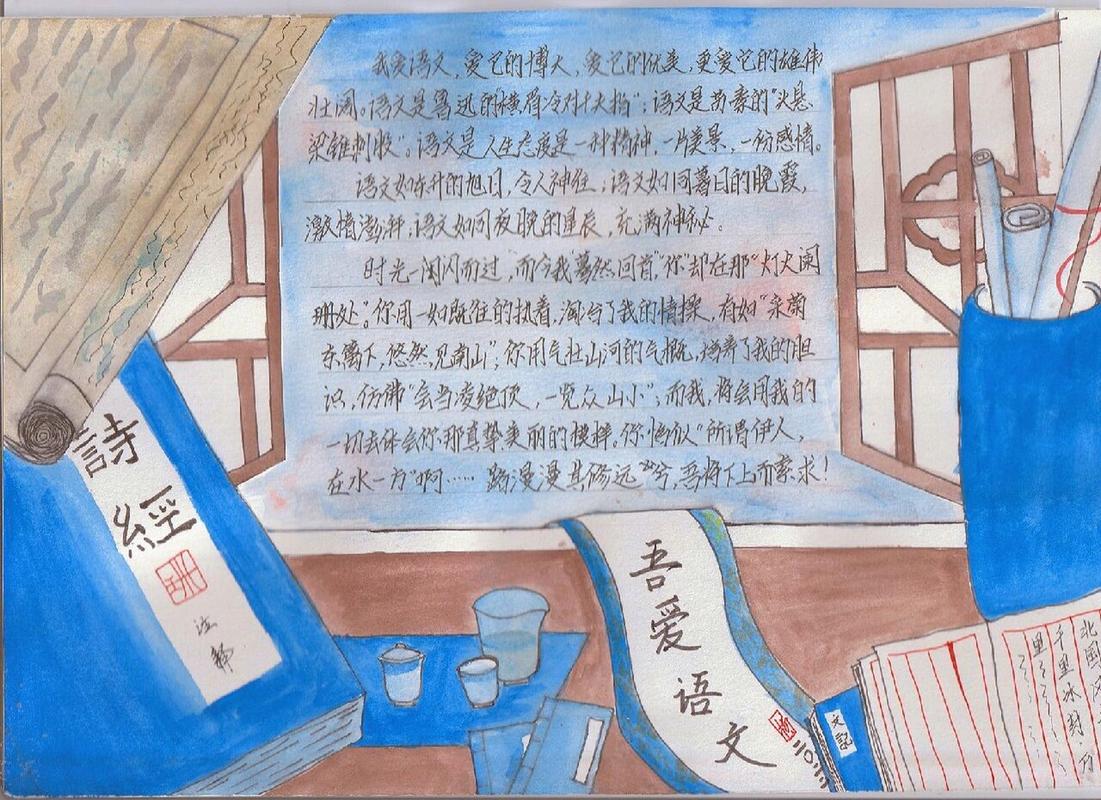 我爱语文,爱它的博大,爱它的优美,更爱它的雄伟
壮阔。语文是鲁迅的"横眉冷对千夫指";语文是苏秦的"头悬
梁锥刺股";语文是人生态度是一种精神,一片美景,一份感情。
语文如东升的旭日,令人神往;语文如同暮日的晚霞,
激情澎湃;语文如同夜晚的星辰,充满神秘。
时光一闪闪而过,而今我蓦然回首"你"却在那"灯火阑
珊处"。你用一如既往的执着,陶冶了我的情操,有如"采菊
东篱下,悠然见南山";你用气壮山河的气概,培养了我的胆
识,仿佛"会当凌绝顶,一览众山小";而我,将会用我的
一切去体会你那真挚美丽的模样。你恰似"所谓伊人,
在水一方"啊……路漫漫其修远"兮,吾将下上而索求!
詩經
注释
吾爱语文
文記
北國
千里冰封·万
里